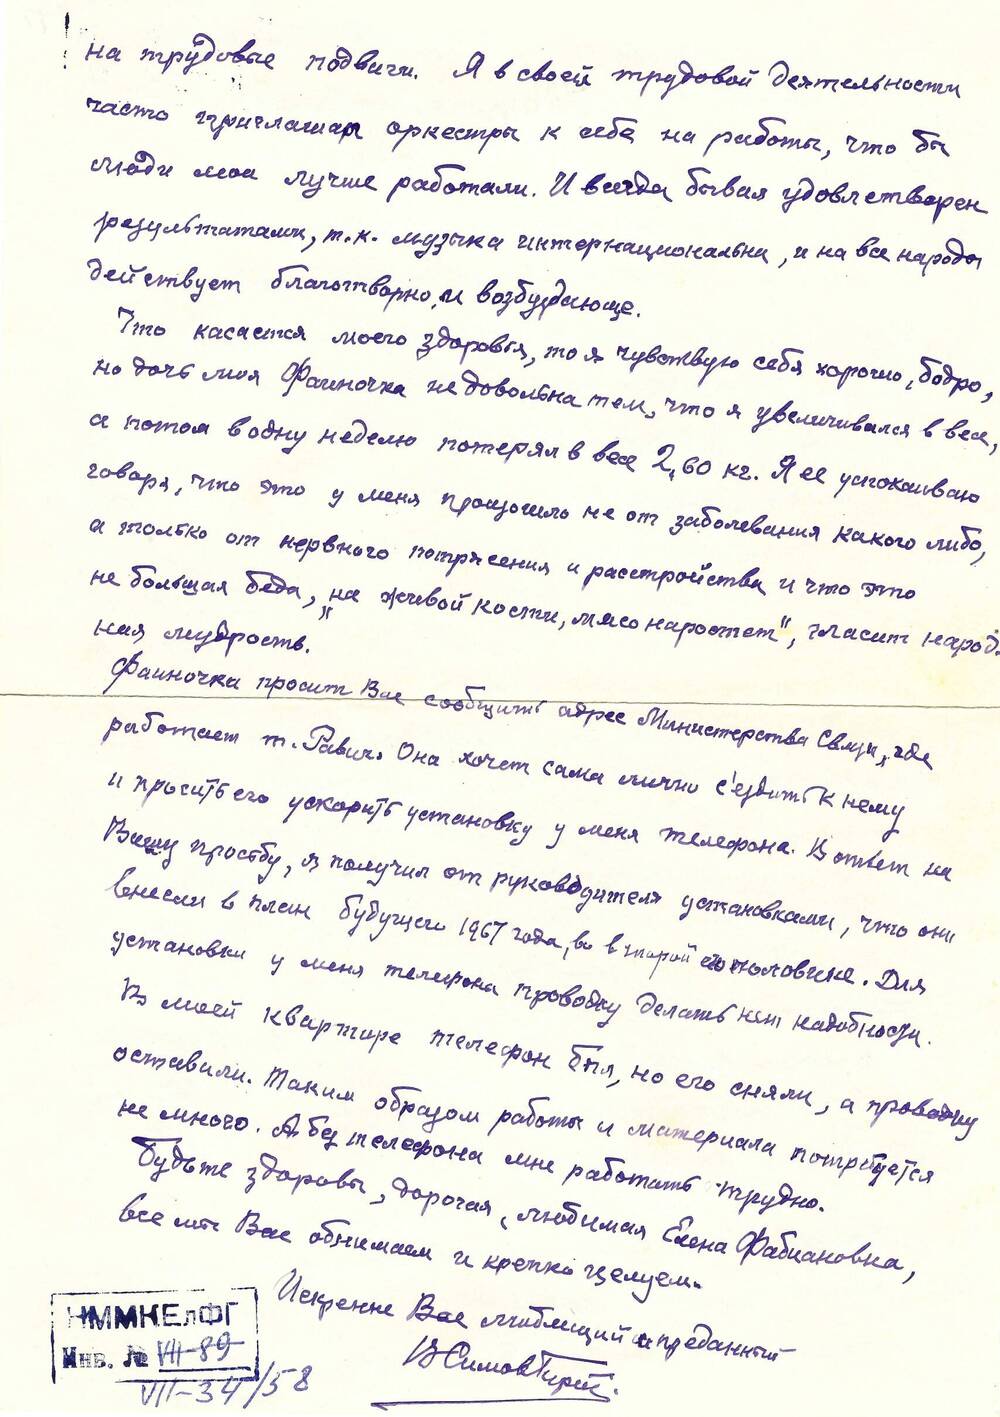 на трудовые подвиги. Я в своей трудовой деятельности
часто приглашал оркестры к себе на работы, что бы
люди мои лучше работали. И всегда бывал удовлетворен
результатами, т.к. музыка интернациональна, и на все народы
действует благотворно и возбуждающе.
Что касается моего здоровья, то я чувствую себя хорошо, бодро,
но дочь моя Фаиночка недовольна тем, что я увеличивался в весе,
а потом в одну неделю потерял в весе 2,60 кг. Я ее успокаиваю
говоря, что это у меня произошло не от заболевания какого либо,
а только от нервного потрясения и расстройства и что это
не большая беда, "на живой кости, мясо наростет", гласит народ-
ная мудрость.
Фаиночка просит Вас сообщить адрес Министерства Связи, где
работает т. Равич. Она хочет сама лично с'ездить к нему
и просить его ускорить установку у меня телефона. В ответ на
Вашу просьбу, я получил от руководителя установками, что они
внесли в план будущего 1967 года, во второй его половине. Для
установки у меня телефона проводку делать нет надобности.
В моей квартире телефон был, но его сняли, а проводку
оставили. Таким образом работы и материала потребуется
не много. А без телефона мне работать трудно.
Будьте здоровы, дорогая, любимая Елена Фабиановна,
все мы Вас обнимаем и крепко целуем.
Искренне Вас любящий и преданный
В Симовтирт.
НММКЕлФГ
Инв. № VII-89
VII-34/58